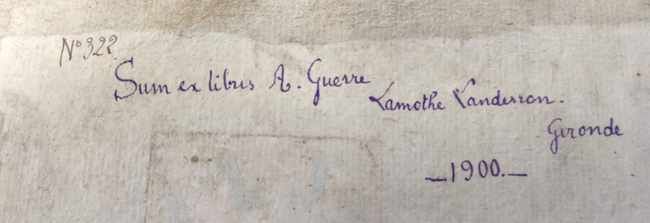 N° 322
Sum ex libris A. Guerre
Lamothe Landerron.
Gironde
—1900.—